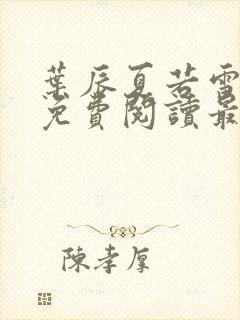 葉辰夏若雪
免費閱讀最
陳孝厚